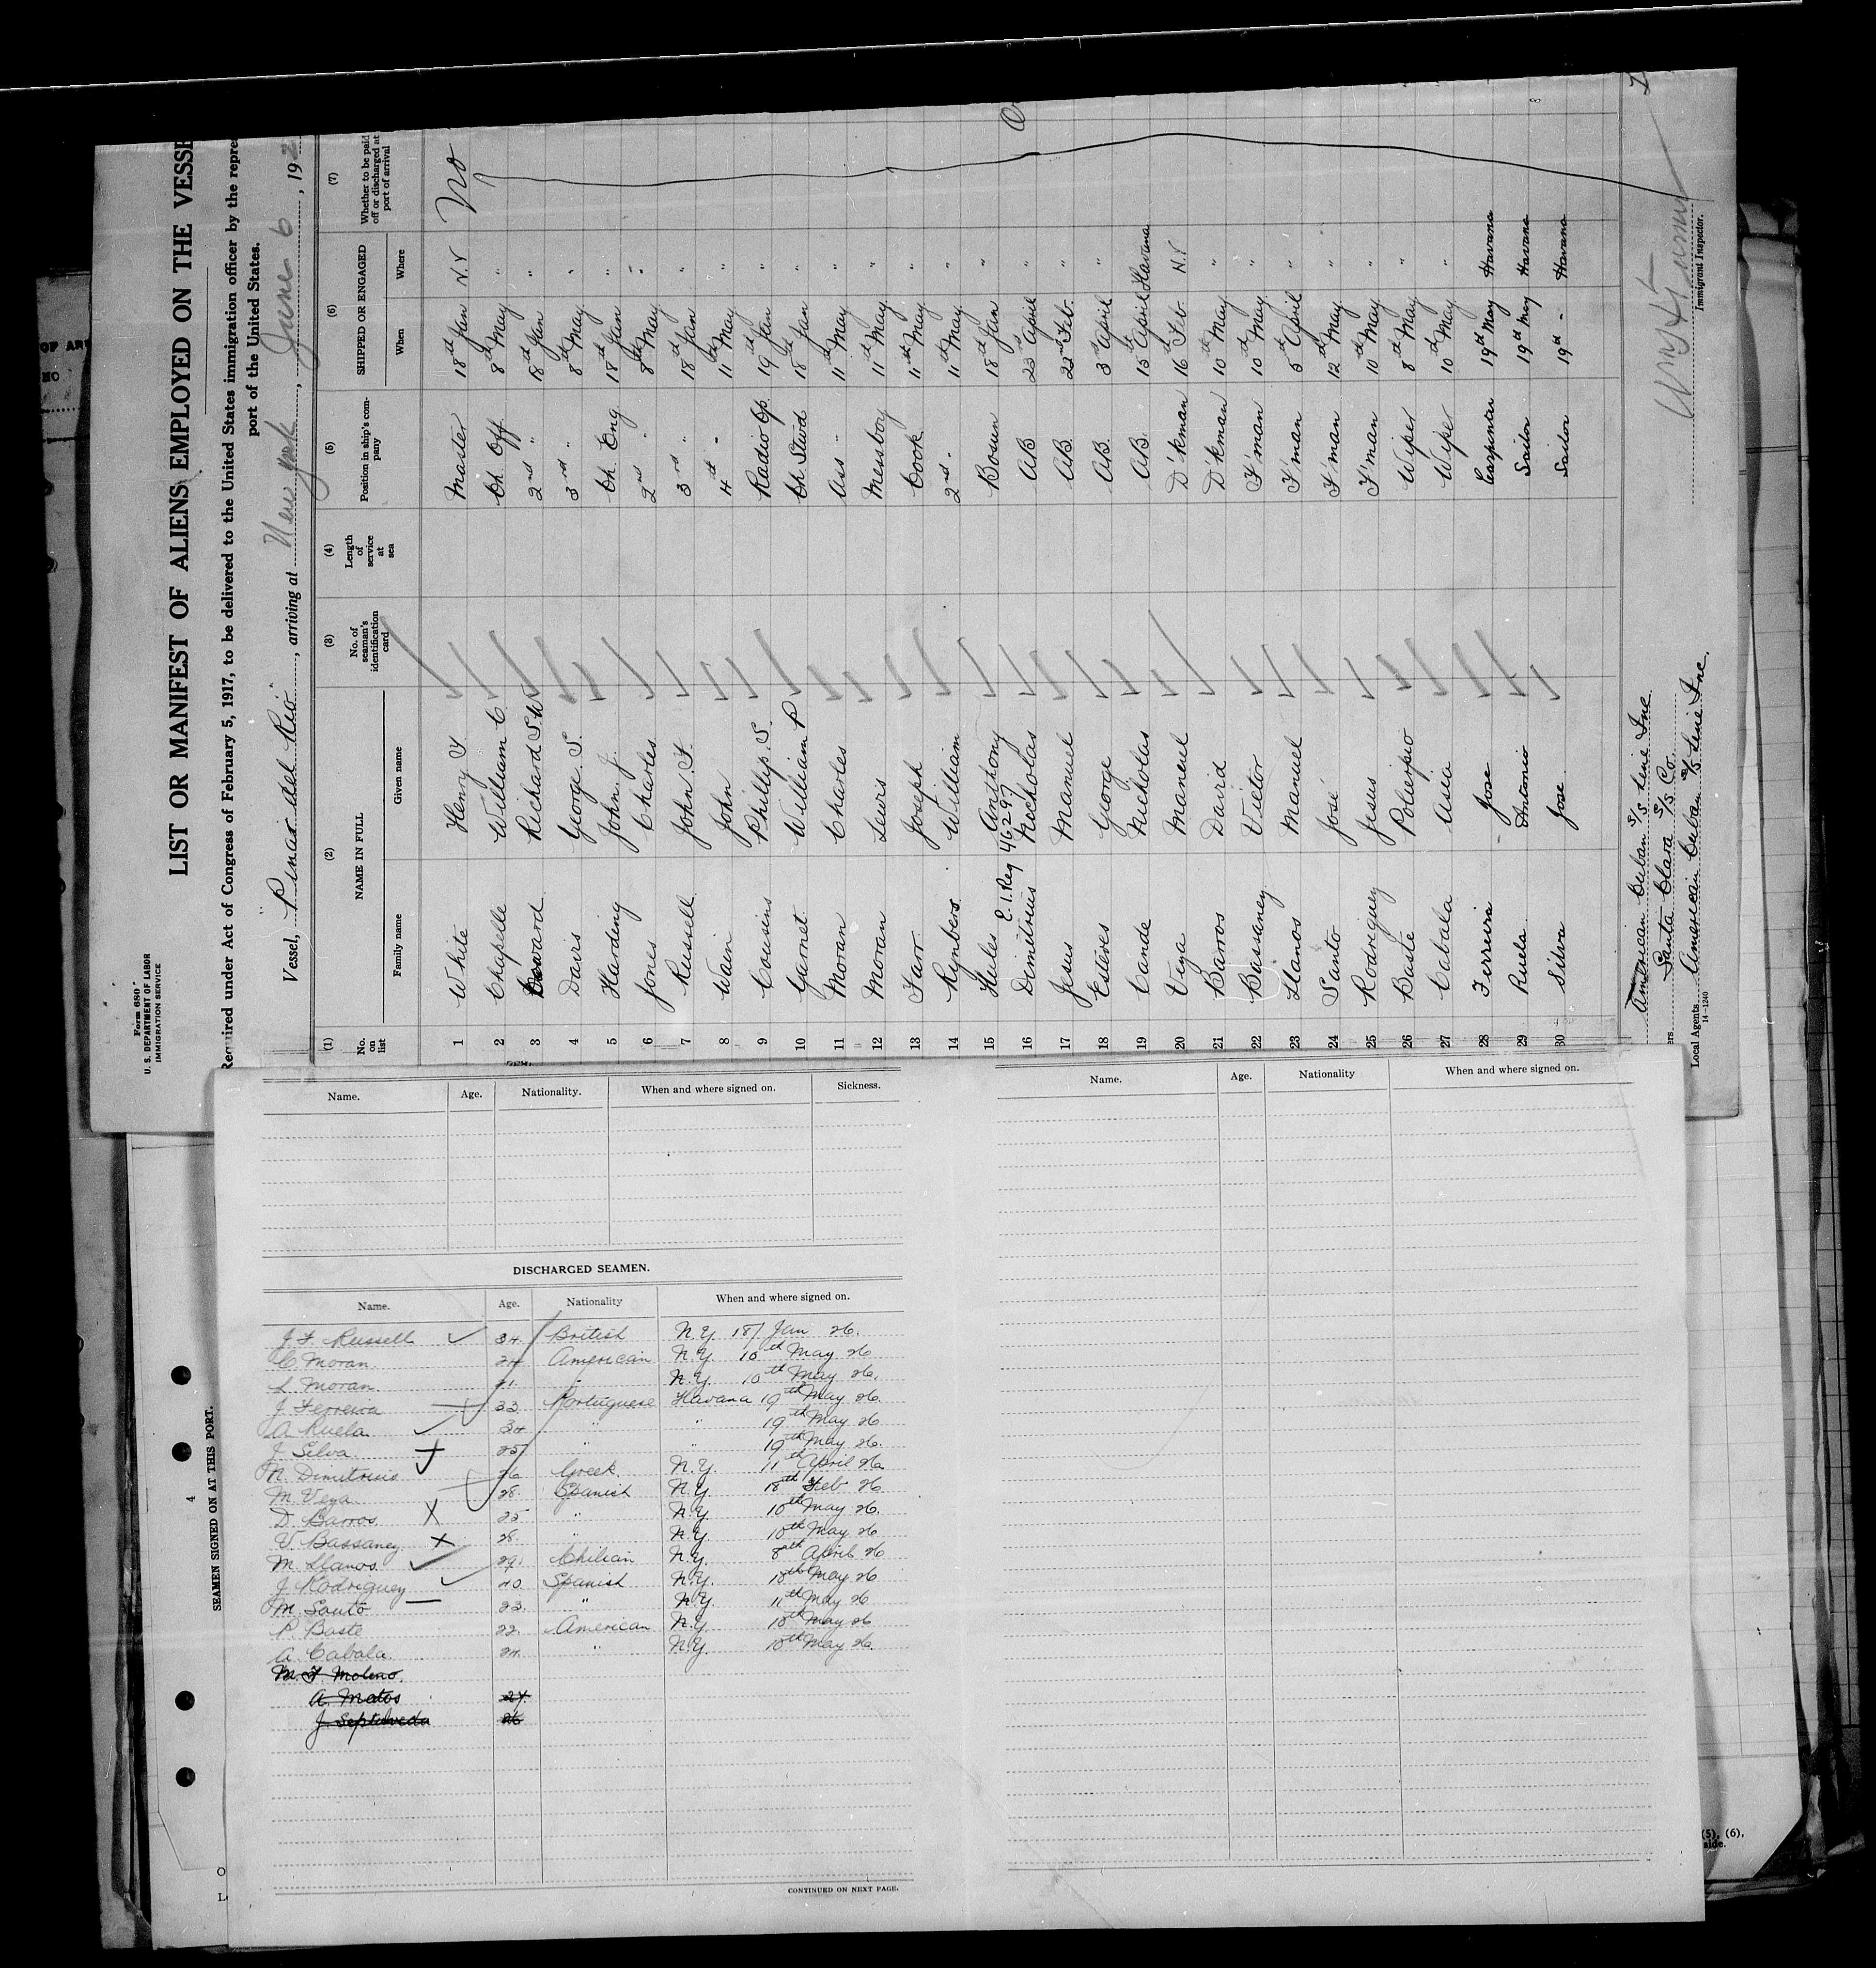 Form 680
U. S. DEPARTMENT OF LABOR
IMMIGRATION SERVICE
LIST OR MANIFEST OF ALIENS EMPLOYED ON THE VESSE
Required under Act of Congress of February 5, 1917, to be delivered to the United States immigration officer by the repre
port of the United States.
Vessel, "Pinar del Rio", arriving at New York, June 6, 192
(1) No. on list (2) NAME IN FULL Family name Given name (3) No. of seaman's identification card (4) Length of service at sea (5) Position in ship's company (6) SHIPPED OR ENGAGED When Where (7) Whether to be paid off or discharged at port of arrival
1 White Henry Master 18th Jan N.Y No
2 Chapelle William C. Ch. Off 8th May "
3 Richard S.W 2nd " 18th Jan "
4 Davis George S. 3rd " 8th May "
5 Harding John J. Ch. Eng 18th Jan "
6 Jones Charles 2nd " 8th May "
7 Russell John F 3rd " 18th Jan "
8 Wain John 4th " 11th May "
9 Cousins Phillip S. Radio Op. 19th Jan "
10 Garnet William P Ch. Stwd 18th Jan "
11 Moran Charles Ass " 11th May "
12 Moran Lewis Messboy 11th May "
13 Farr Joseph Cook 11th May "
14 Rynbers William 2nd " 11th May "
15 Hules Anthony Bosun 18th Jan "
E. 1. Reg 46297
16 Dimitrius Nicholas AB 23 April "
17 Jesus Manuel AB 22nd Feb. "
18 Esteves George AB. 3rd April "
19 Cande Nicholas AB. 15th April Havana
20 Vega Manuel D'kman 16th Feb. N.Y
21 Barros David D'kman 10th May "
22 Bassaney Victor F'man 10th May "
23 Llanos Manuel F'man 5th April "
24 Santo José F'man 12th May "
25 Rodriguey Jesus F'man 10th May "
26 Baste Policrpio Wiper 8th May "
27 Cabala Asia Wiper 10th May "
28 Ferreira Jose Carpenter 19th May Havana
29 Ruela Antonio Sailor 19th May Havana
30 Silva Jose Sailor 19th - Havana
American Cuban S/S Line Inc
Santa Clara S/S Co.
Local Agents American Cuban S/S Line Inc.
14-1240
Immigrant Inspector.
Name. Age. Nationality. When and where signed on. Sickness.
DISCHARGED SEAMEN.
Name. Age. Nationality When and where signed on.
J. F. Russell 34. British N.Y. 18/ Jan 26.
C. Moran 24 American N.Y. 10th May 26
L. Moran 21. " N.Y. 10th May 26.
J. Ferreira 33. Portuguese Havana 19th May 26.
A. Ruela 34. " " 19th May 26
J. Silva 25 " " 19th May 26.
N. Dimitrius 26 Greek. N.Y. 11th April 26
M. Vega 28. Spanish N.Y. 18th Feb 26
D. Barros 25 " N.Y. 10th May 26.
V. Bassaney 28. " N.Y. 10th May 26
M. Llanos. 29. Chilian N.Y. 8th April 26
J. Rodriguey 40. Spanish N.Y. 10th May 26
M. Santo 23. " N.Y. 11th May 26
P. Baste 22. American N.Y. 10th May 26
A. Cabala. 24. " N.Y. 10th May 26.
M. F. Moleno.
A. Matos 24.
J. Septulveda 26
CONTINUED ON NEXT PAGE.
Name. Age. Nationality When and where signed on.
4
SEAMEN SIGNED ON AT THIS PORT.
(5), (6),
side.